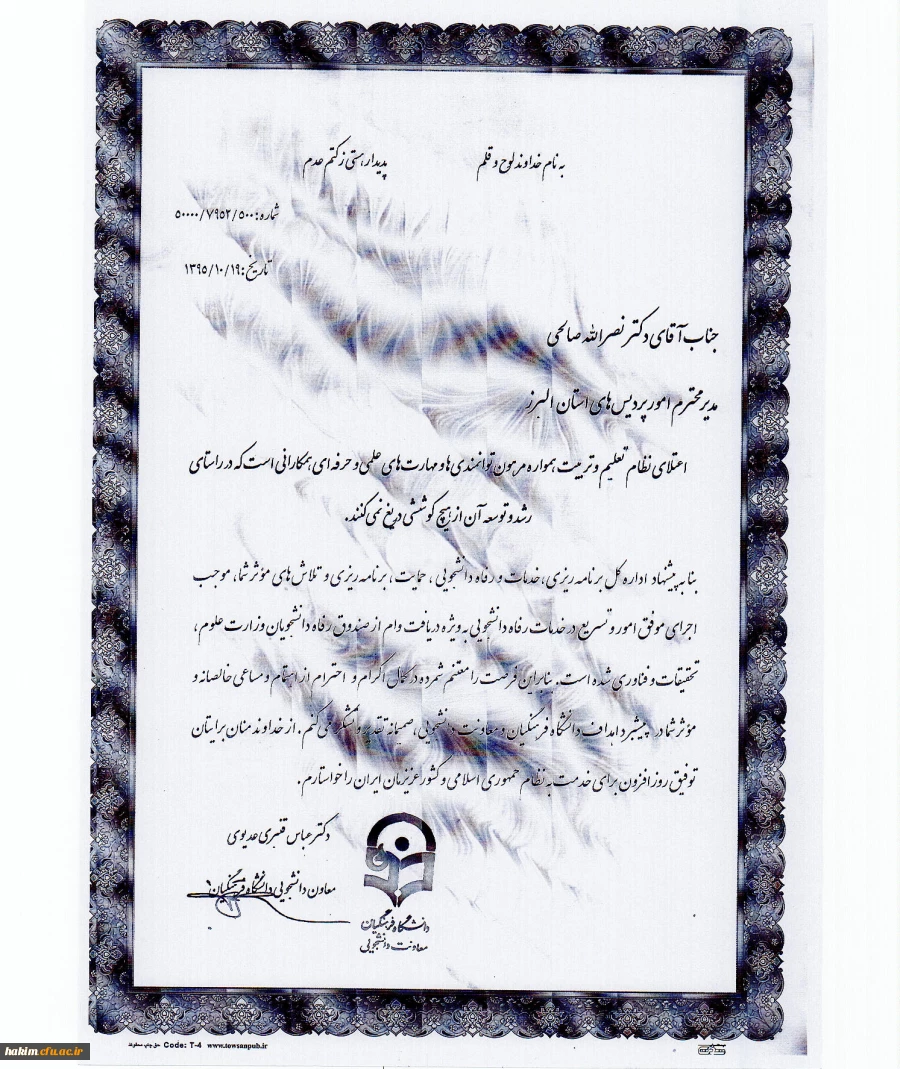 به نام خداوند لوح و قلم پدیدار هستی ز کتم عدم
شماره: ۵۰۰۰۰/۷۹۵۲/۵۰۰
تاریخ: ۱۳۹۵/۱۰/۱۹
جناب آقای دکتر نصرالله صالحی
مدیر محترم امور پردیس های استان البرز
اعتلای نظام تعلیم و تربیت همواره مرهون توانمندی ها و مهارت های علمی و حرفه ای همکارانی است که در راستای
رشد و توسعه آن از هیچ کوششی دریغ نمی کنند.
بنا به پیشنهاد اداره کل برنامه ریزی، خدمات و رفاه دانشجویی، حمایت، برنامه ریزی و تلاش های مؤثر شما، موجب
اجرای موفق امور و تسریع در خدمات رفاه دانشجویی به ویژه دریافت وام از صندوق رفاه دانشجویان وزارت علوم،
تحقیقات و فناوری شده است. بنابراین فرصت را مغتنم شمرده در کمال اکرام و احترام از اهتمام و مساعی خالصانه و
مؤثر شما در پیشبرد اهداف دانشگاه فرهنگیان و معاونت دانشجویی، صمیمانه تقدیر و تشکر می کنم. از خداوند منان برایتان
توفیق روز افزون برای خدمت به نظام جمهوری اسلامی و کشور عزیزمان ایران را خواستارم.
دکتر عباس قنبری عدیوی
معاون دانشجویی دانشگاه فرهنگیان
دانشگاه فرهنگیان
معاونت دانشجویی
حق چاپ محفوظ Code: T-4 www.towsanpub.ir
hakim.cfu.ac.ir